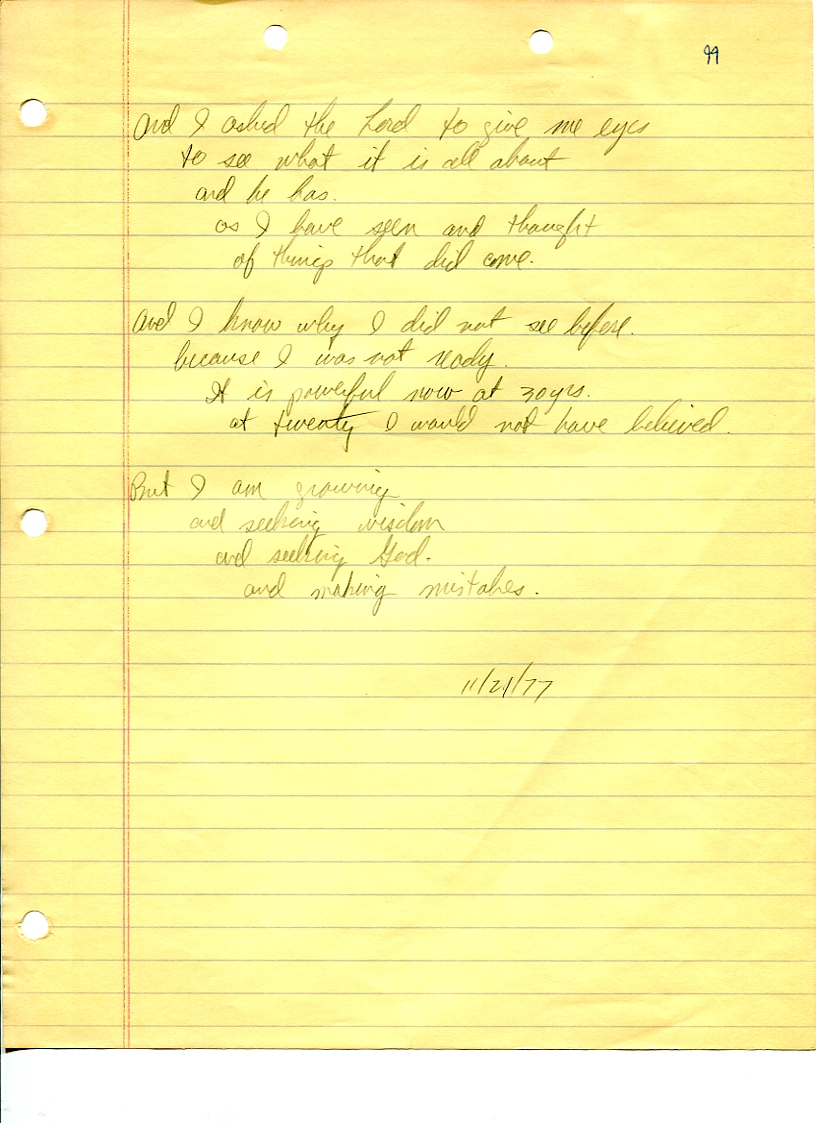 99
And I asked the Lord to give me eyes
to see what it is all about
and he has.
as I have seen and thought
of things that did come.
And I know why I did not see before.
because I was not ready.
It is powerful now at 30 yrs.
at twenty I would not have believed.
But I am growing
and seeking wisdom
and seeking God.
and making mistakes.
11/21/77